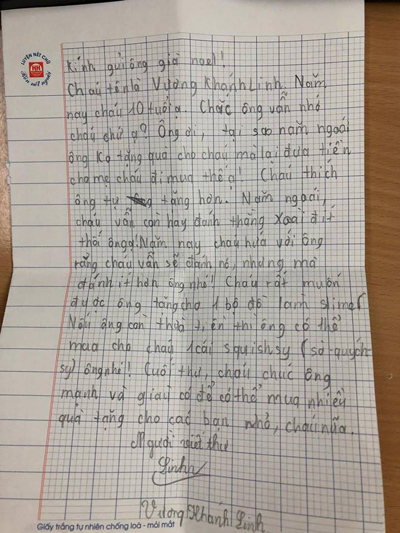 LUYỆN NÉT CHỮ
RÈN NẾT NGƯỜI
Kính gửi ông già noel!
Cháu tên là Vương Khánh Linh. Năm
nay cháu 10 tuổi ạ. Chắc ông vẫn nhớ
cháu chứ ạ? Ông ơi, tại sao năm ngoái
ông ko tặng quà cho cháu mà lại đưa tiền
cho mẹ cháu đi mua thế ạ! Cháu thích
ông tự tặng hơn. Năm ngoái
cháu vẫn còn hay đánh thằng Xoài đít
thối ông ạ. Năm nay cháu hứa với ông
rằng cháu vẫn sẽ đánh nó, nhưng mà
đánh ít hơn ông nhé! Cháu rất muốn
được ông tặng cho 1 bộ đồ làm slime!
Nếu ông còn thừa tiền thì ông có thể
mua cho cháu 1 cái squishsy (sờ-quýsh
sy) ông nhé! Cuối thư, cháu chúc ông
mạnh và giàu có để có thể mua nhiều
quà tặng cho các bạn nhỏ, cháu nữa.
Người viết thư
Linh
Vương Khánh Linh
Giấy trắng tự nhiên chống loá - mỏi mắt